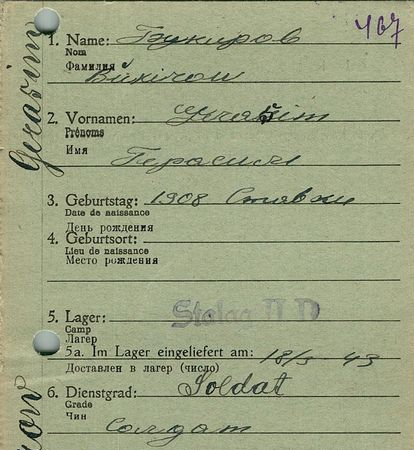 467
1. Name: Букиров
Nom
Фамилия
Bukirow
2. Vornamen: Gerasim
Prénoms
Имя Герасим
3. Geburtstag: 1908
Date de naissance
День рождения
4. Geburtsort:
Lieu de naissance
Место рождения
5. Lager: Stalag II D
Camp
Лагерь
5a. Im Lager eingeliefert am: 18/3-43
Доставлен в лагерь (число)
6. Dienstgrad: Soldat
Grade
Чин
Солдат
Gerasim